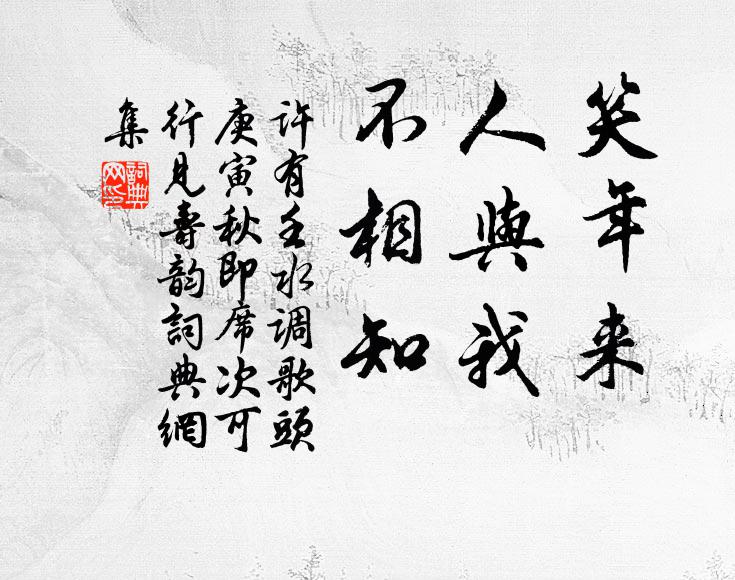 笑年来
人與我
不相知
许有壬水调歌頭
庚寅秋即席次可
行見壽韵詞典網
集
詞典网印